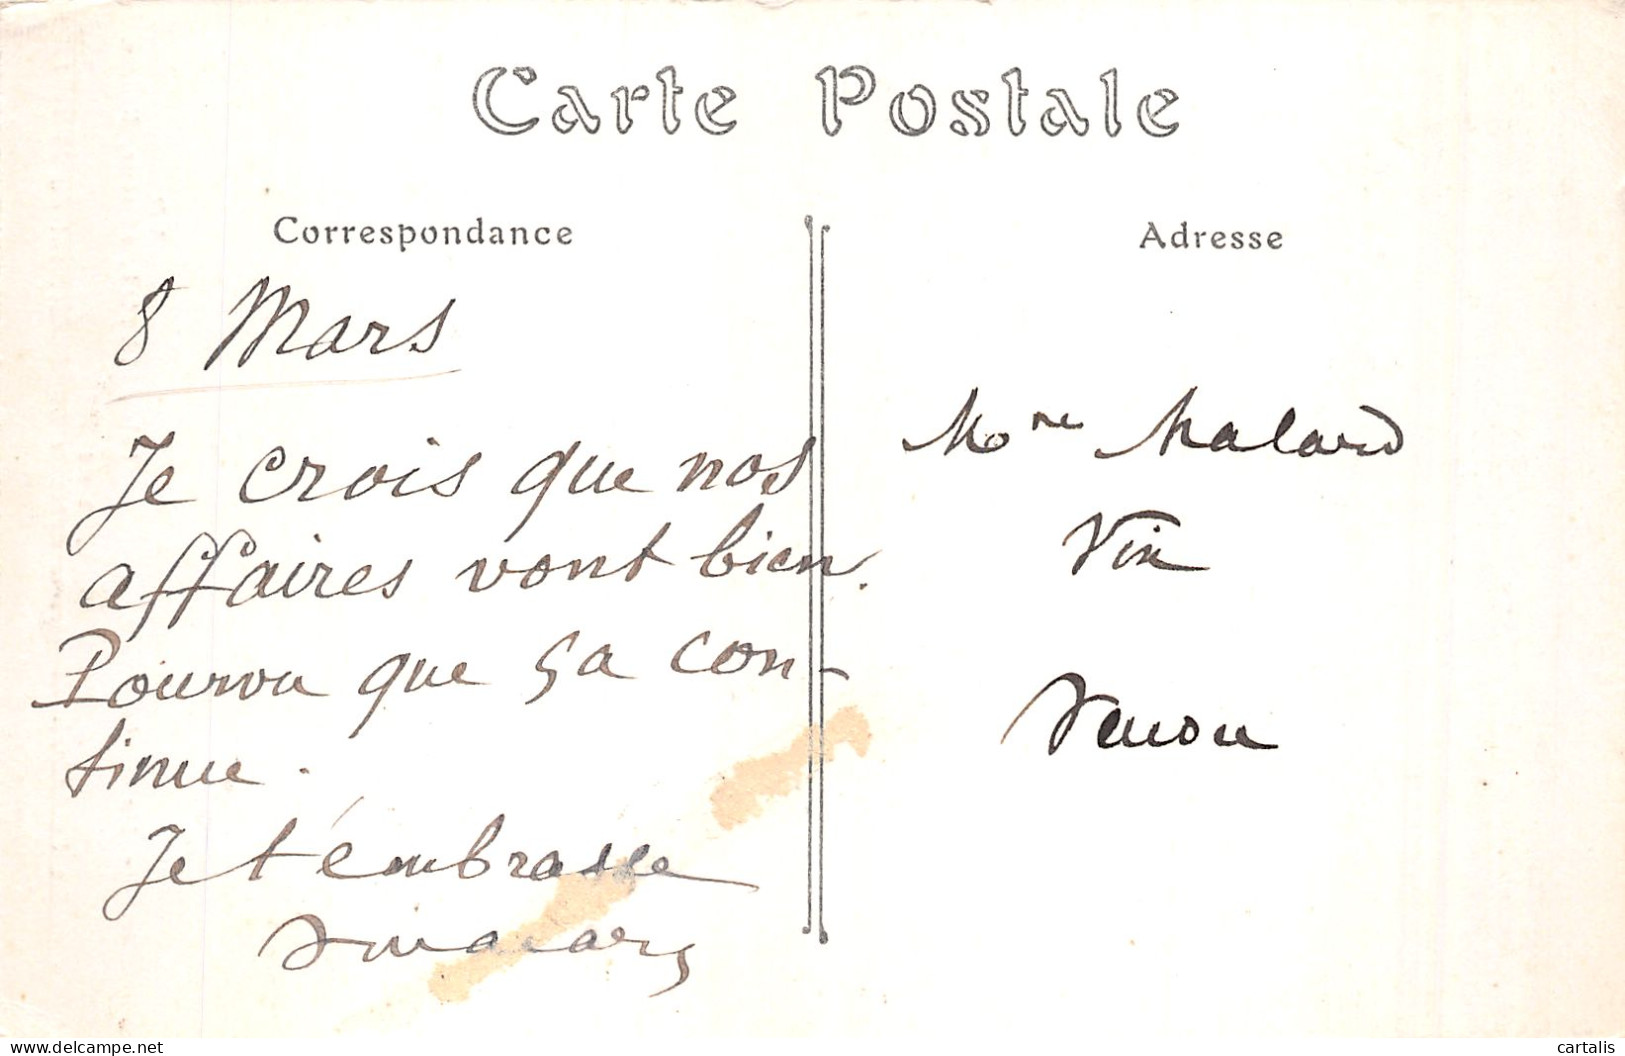 Carte Postale
Correspondance
8 Mars
Je crois que nos
affaires vont bien.
Pourvu que ça con-
tinue.
Je t'embrasse
Adresse
Mme Malard
Vin
cartalis